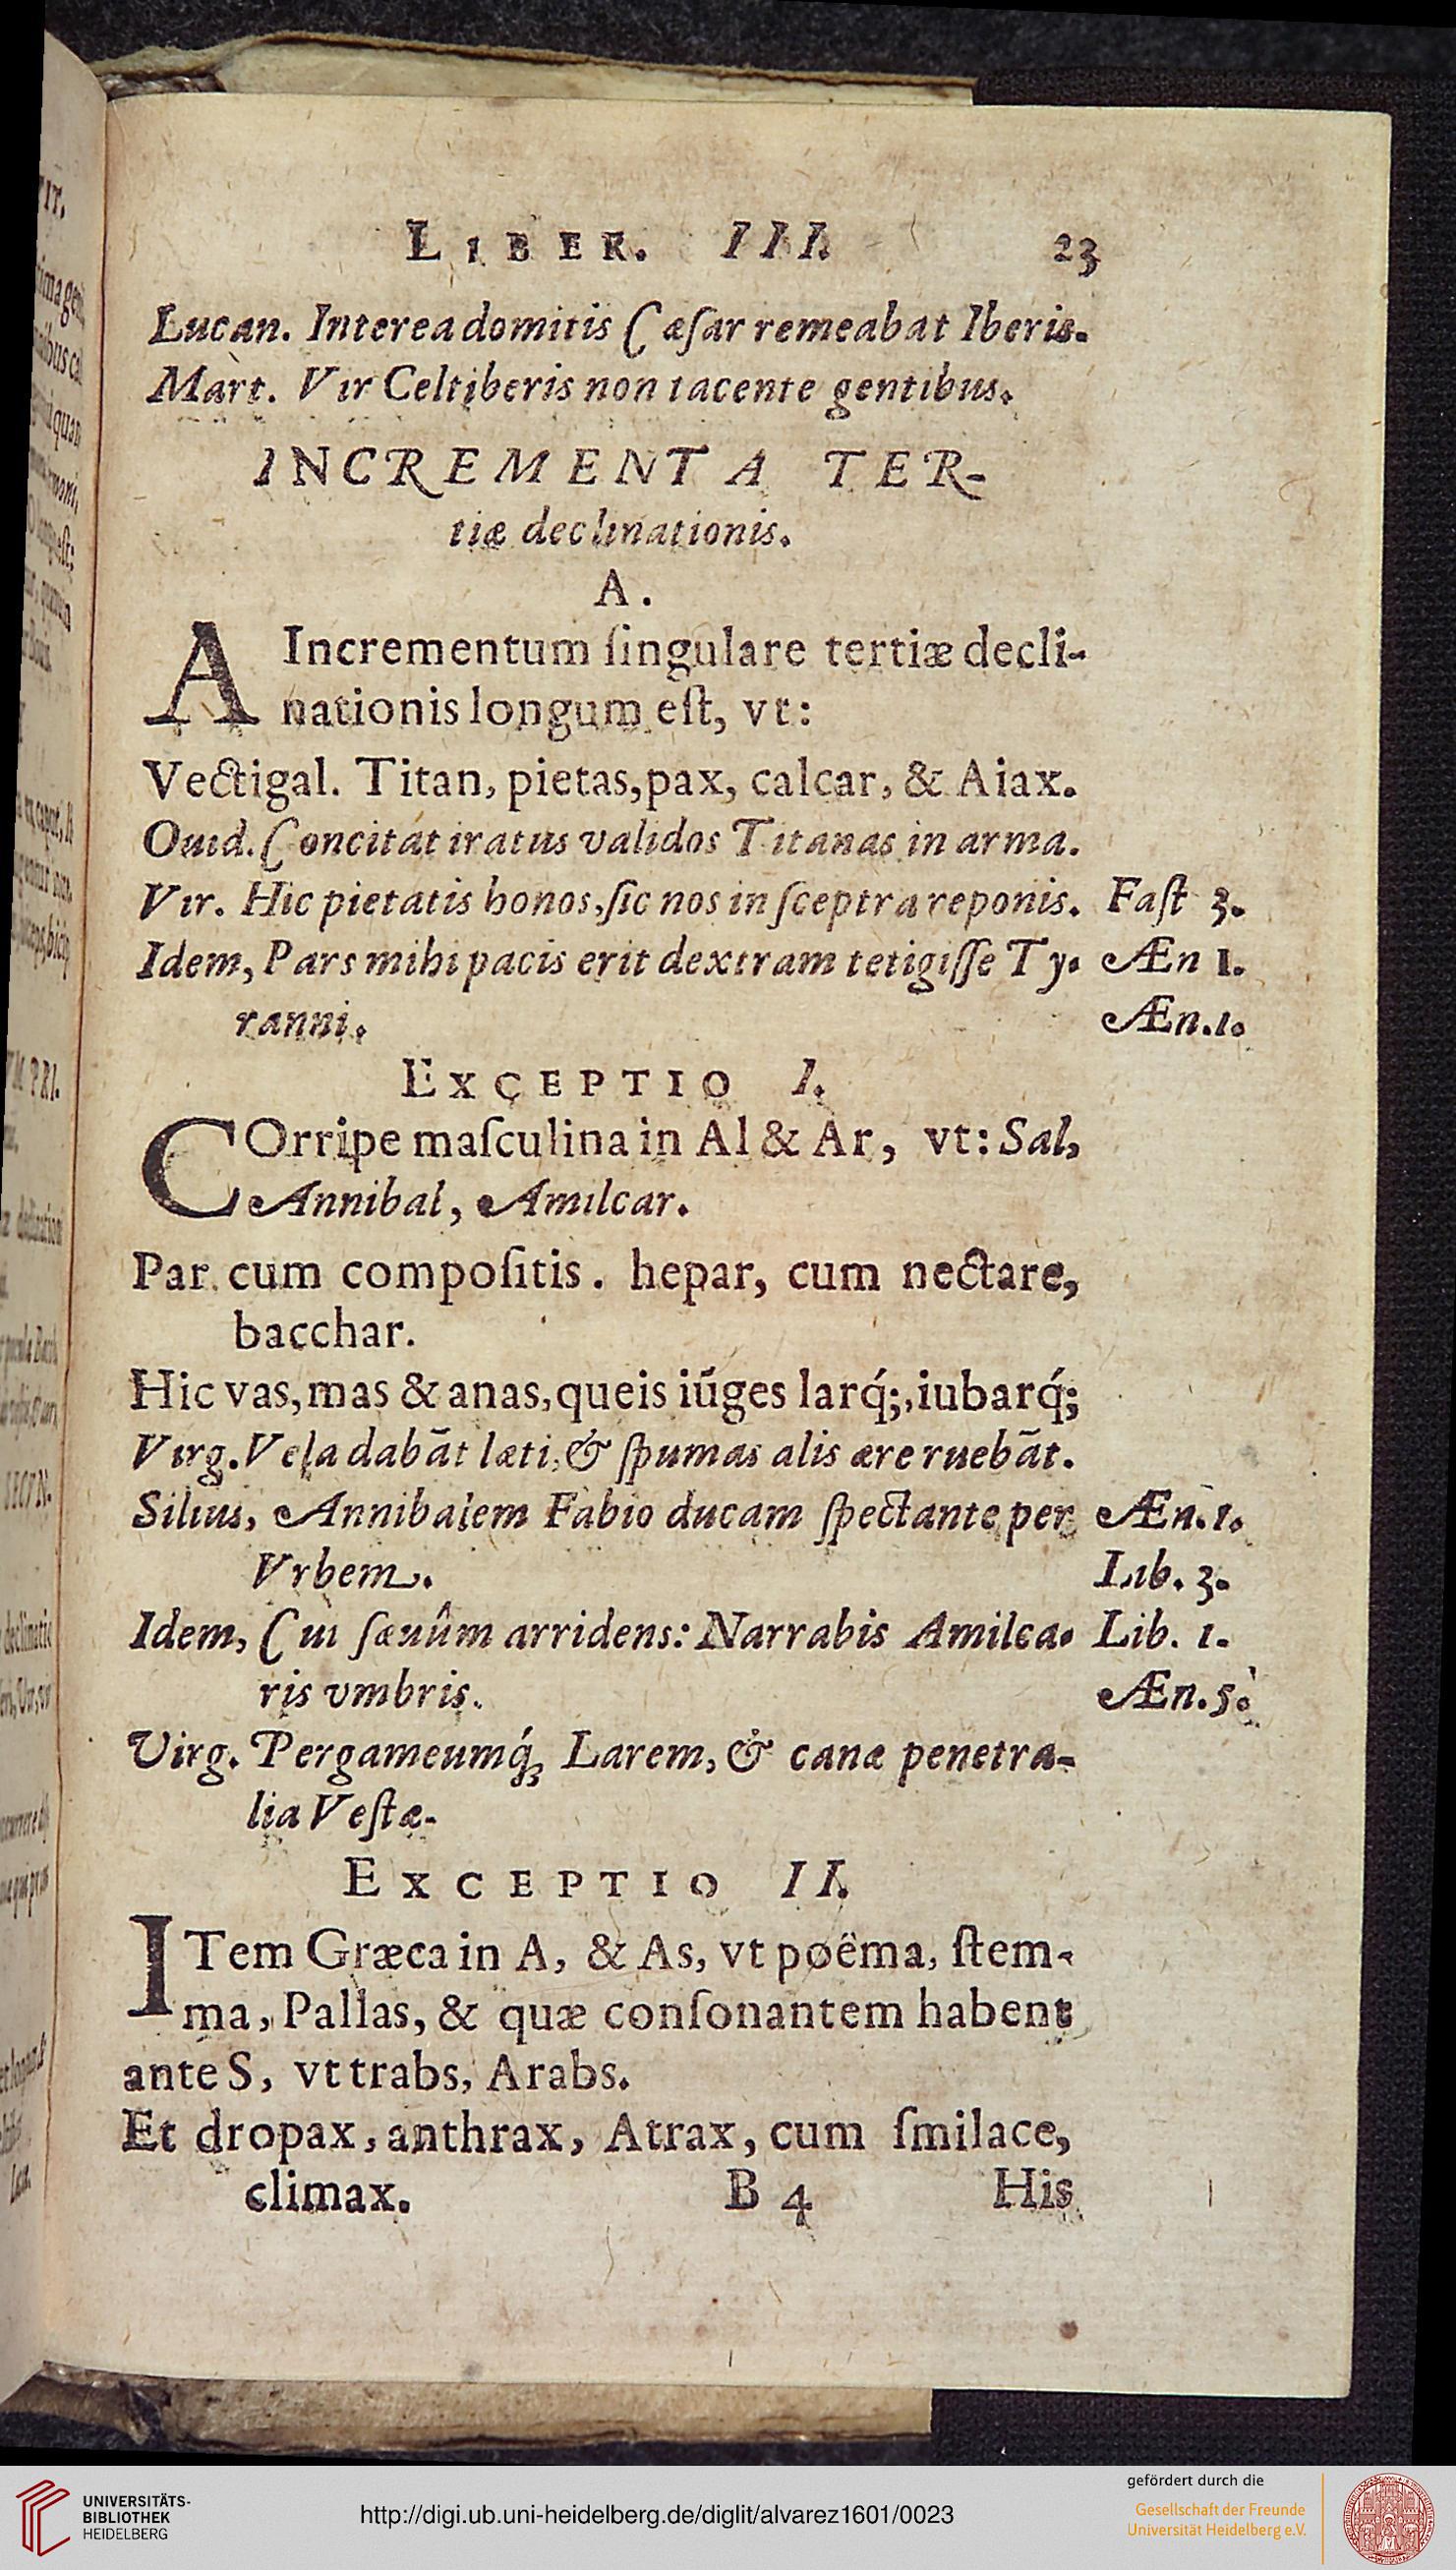 LIBER. III. 23
Lucan. Interea domitis Cæſar remeabat Iberis.
Mart. Vir Celtiberis non tacente gentibus.
INCREMENTA TER-
tiæ declinationis.
A.
A Incrementum ſingulare tertiæ decli-
nationis longum eſt, vt:
Vectigal. Titan, pietas, pax, calcar, & Aiax.
Ouid. Concitat iratus validos Titanas in arma.
Vir. Hic pietatis honos, ſic nos in ſceptra reponis. Faſt 3.
Idem, Pars mihi pacis erit dextram tetigiſſe Ty- Æn 1.
ranni. Æn.1.
EXCEPTIO I.
COrripe maſculina in Al & Ar, vt: Sal,
Annibal, Amilcar.
Par cum compoſitis. hepar, cum nectare,
bacchar.
Hic vas, mas & anas, queis iūges larq́;, iubarq́;
Virg. Vela dabāt læti, & ſpumas alis ære ruebāt.
Silius, Annibalem Fabio ducam ſpectante per Æn.1.
Vrbem. Lib. 3.
Idem, Cui ſæuûm arridens: Narrabis Amilca- Lib. 1.
ris vmbris. Æn.5.
Virg. Pergameumq́; Larem, & canæ penetra-
lia Veſtæ.
EXCEPTIO II.
ITem Græca in A, & As, vt poëma, ſtem-
ma, Pallas, & quæ conſonantem habent
ante S, vt trabs, Arabs.
Et dropax, anthrax, Atrax, cum ſmilace,
climax. B 4 His
UNIVERSITÄTS-
BIBLIOTHEK
HEIDELBERG
http://digi.ub.uni-heidelberg.de/diglit/alvarez1601/0023
gefördert durch die
Gesellschaft der Freunde
Universität Heidelberg e.V.